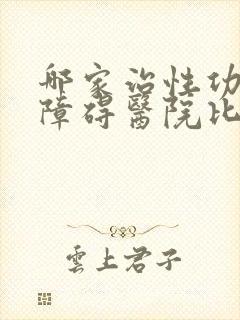 哪家治性功
障碍醫院比
雲上君子